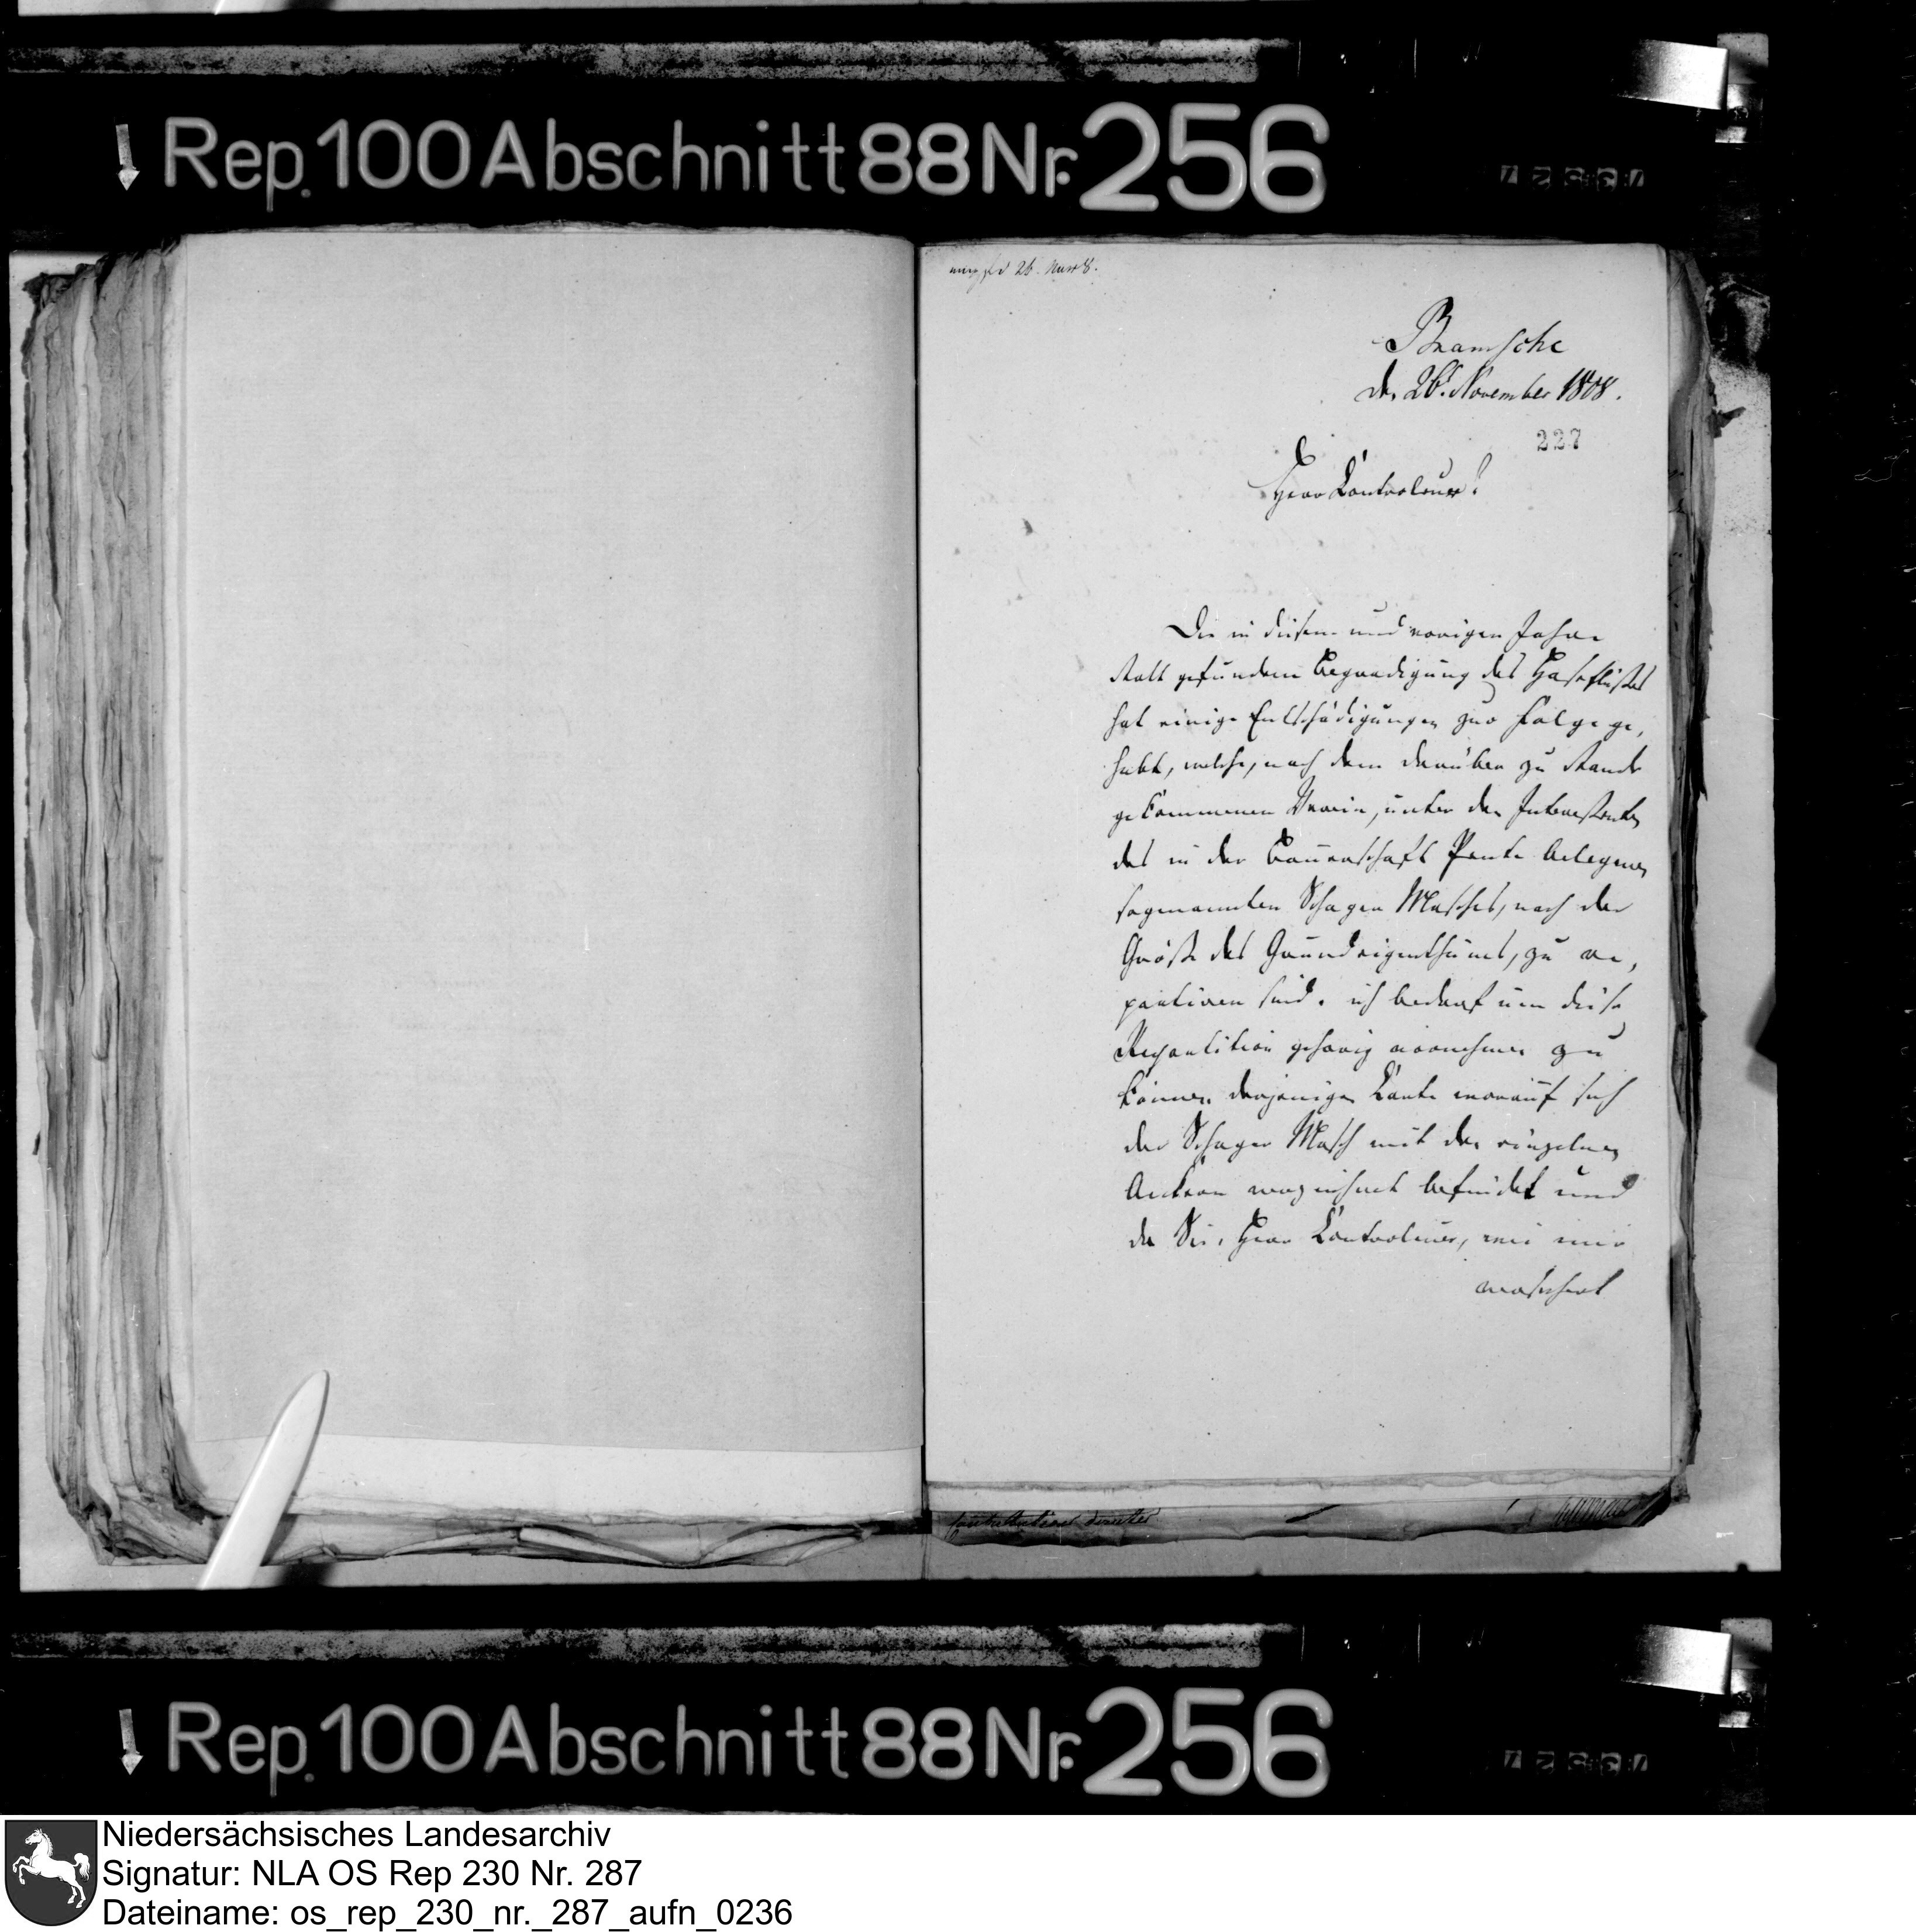 Rep. 100 Abschnitt 88 Nr. 256
26. Nov 8.
Bramsche
den 26t. November 1808.
227
Herr Controleur!
Die in diesem und vorigen Jahre
statt gefundene Begradigung des Haseflußes
hat einige Entschädigungen zur Folge ge,
habt, welche, nach dem darüber zu Stande
gekommenen Verein, unter den Interessenten
des in der Bauerschaft Pente belegenen
sogenannten Schager Masches, nach der
Größe des Grundeigenthums, zu re,
partiren sind. ich bedarf um diese
Repartition gehörig vornehmen zu
können derjenigen Karte worauf sich
der Schager Masch mit den einzelnen
Äckern verzeichnet befindet und
da Sie, Herr Controleur, wie mir
versichert
Rep. 100 Abschnitt 88 Nr. 256
Niedersächsisches Landesarchiv
Signatur: NLA OS Rep 230 Nr. 287
Dateiname: os_rep_230_nr._287_aufn_0236